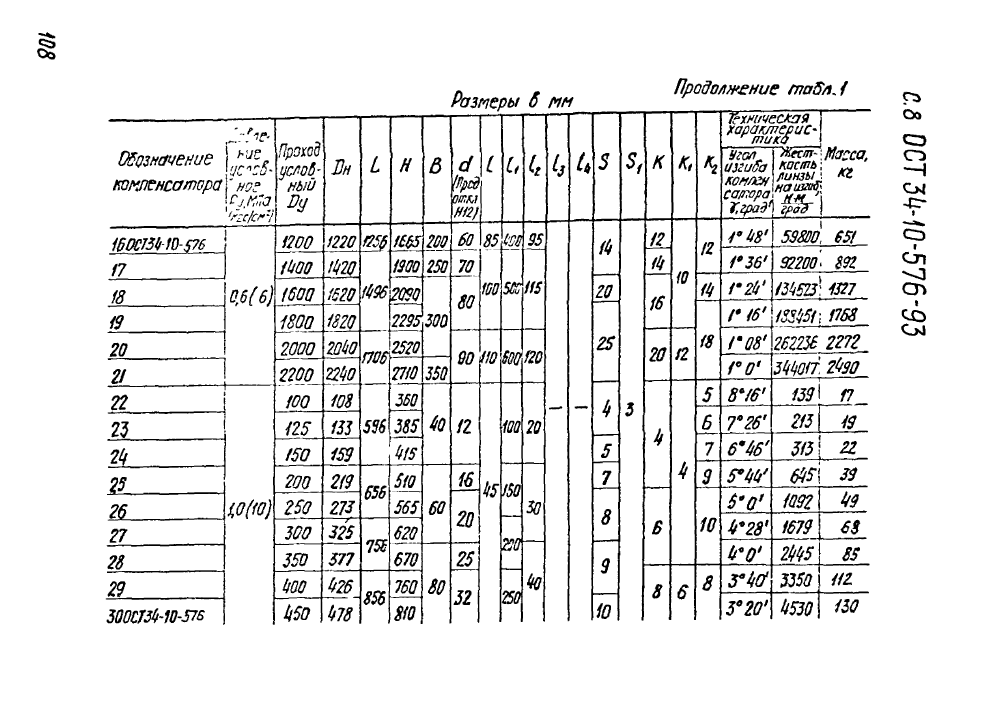 108
С.8 ОСТ 34-10-576-93
Продолжение табл.1
Размеры в мм
Обозначение компенсатора | условное Ру, МПа (кгс/см²) | Проход условный Dу | Dн | L | H | B | d (Пред. откл. H12) | l | l₁ | l₂ | l₃ | l₄ | S | S₁ | K | K₁ | K₂ | Техническая характеристика | Масса, кг
Угол изгиба компенсатора γ, град | Жесткость линзы на изгиб, Н·м/град
16 ОСТ34-10-576 | 0,6(6) | 1200 | 1220 | 1256 | 1665 | 200 | 60 | 85 | 400 | 95 | — | — | 14 | 3 | 12 | 10 | 12 | 1°48' | 59800 | 651
17 | 1400 | 1420 | 1496 | 1900 | 250 | 70 | 100 | 500 | 115 | 14 | 1°36' | 92200 | 892
18 | 1600 | 1620 | 2090 | 300 | 80 | 20 | 16 | 14 | 1°24' | 134523 | 1327
19 | 1800 | 1820 | 2295 | 25 | 18 | 1°16' | 1768
20 | 2000 | 2040 | 1706 | 2520 | 90 | 110 | 600 | 120 | 20 | 12 | 1°08' | 262236 | 2272
21 | 2200 | 2240 | 2710 | 350 | 1°0' | 344017 | 2490
22 | 1,0(10) | 100 | 108 | 596 | 360 | 40 | 12 | 45 | 100 | 20 | 4 | 4 | 4 | 5 | 8°16' | 139 | 17
23 | 125 | 133 | 385 | 6 | 7°26' | 213 | 19
24 | 150 | 159 | 415 | 5 | 7 | 6°46' | 313 | 22
25 | 200 | 219 | 656 | 510 | 60 | 16 | 150 | 30 | 7 | 9 | 5°44' | 645 | 39
26 | 250 | 273 | 565 | 20 | 8 | 6 | 10 | 5°0' | 1092 | 49
27 | 300 | 325 | 756 | 620 | 200 | 4°28' | 1679 | 68
28 | 350 | 377 | 670 | 80 | 25 | 40 | 9 | 4°0' | 2445 | 85
29 | 400 | 426 | 856 | 760 | 32 | 250 | 8 | 6 | 8 | 3°40' | 3350 | 112
30 ОСТ34-10-576 | 450 | 478 | 810 | 10 | 3°20' | 4530 | 130